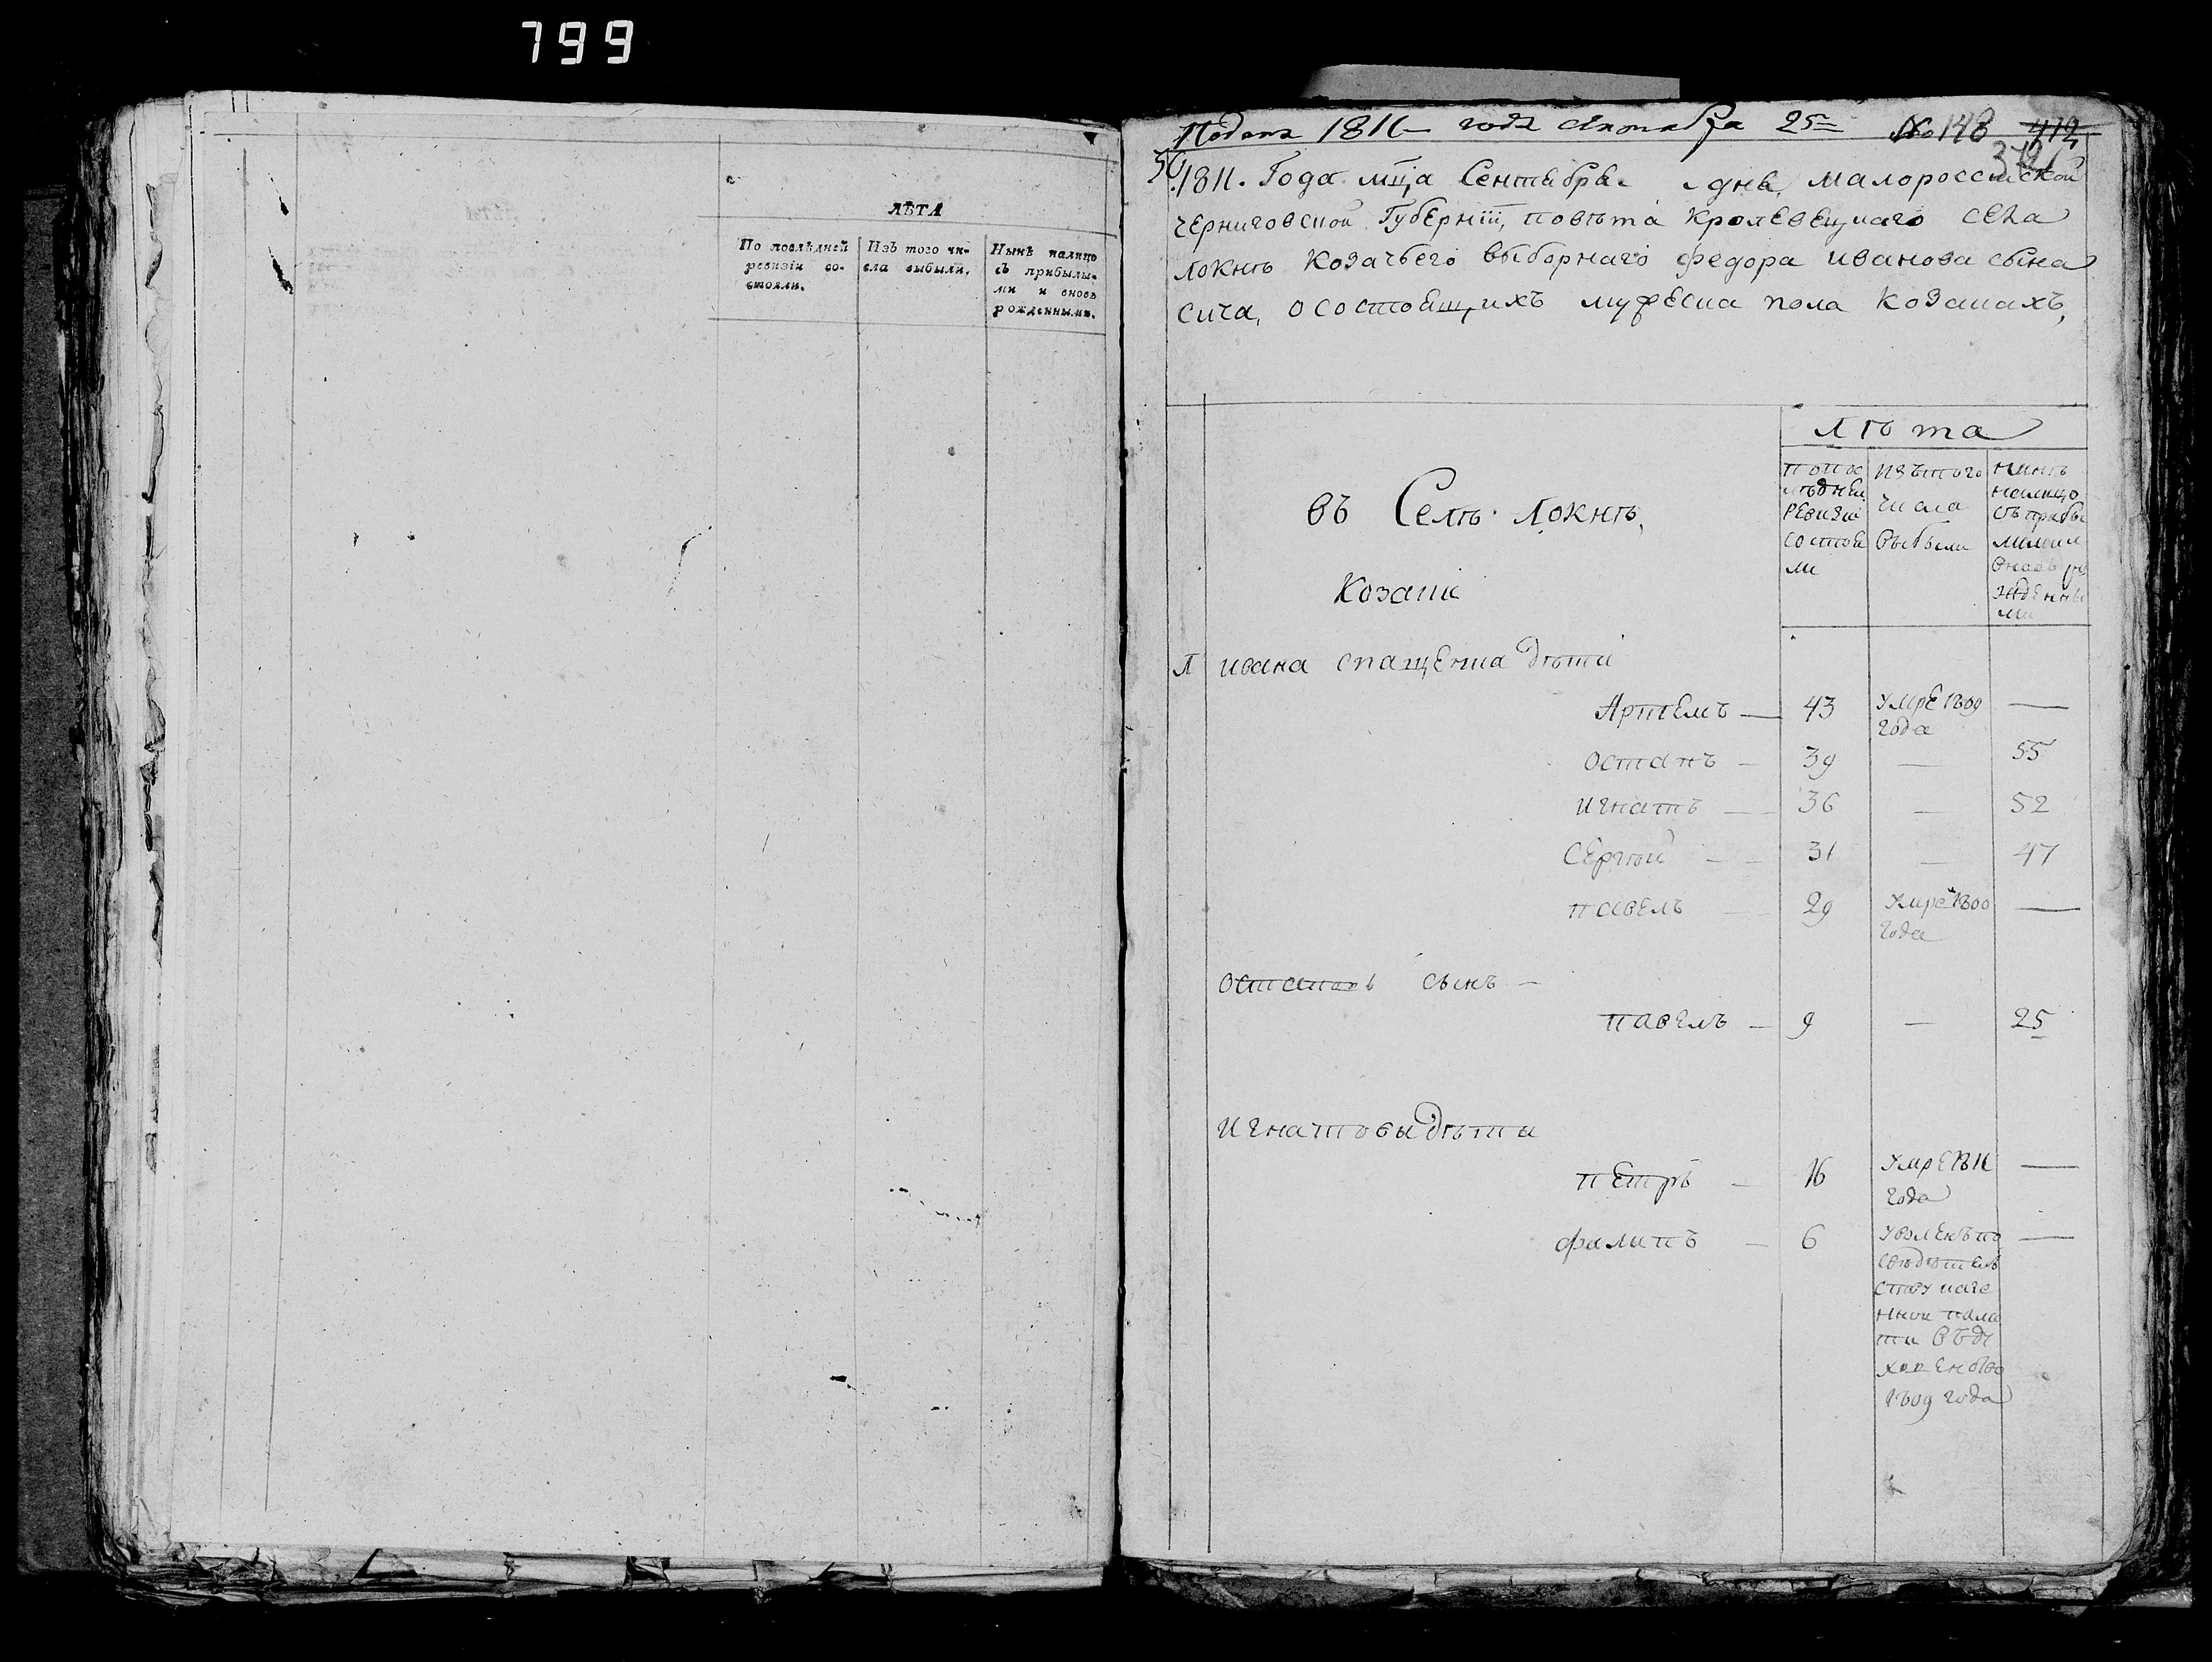 799
ЛѢТА
По послѣдней ревизіи состояли.
Изъ того числа выбыли.
Нынѣ налицо съ прибылыми и вновь рожденными.
Подана 1811 года октабра 25 № 148 412
50
1811. Года мца Сентябра дня, малороссиской
черниговской Губерніи, повѣта кролевецкаго села
локнѣ козачьего выборнаго федора иванова сына
сича, о состоящихъ мужеска пола козакахъ,
лѣта
въ Селѣ локнѣ,
Козаки
попослѣдней ревизіи состояли
изътого числа выбыли
нинѣ налицо съ прибылими вновь рожденными
ивана спащенка дѣти
Артемъ — 43 умре 1809 года —
остапъ — 39 — 55
игнатъ — 36 — 52
сергѣй — 31 — 47
павелъ — 29 умре 1800 года —
остаповъ сынъ —
павелъ — 9 — 25
игнатовы дѣти
петръ — 16 умре 1811 года —
филипъ — 6 уволенъ по
свѣдѣтель
ству казе
нной пала
ти въ ду
ховенство
1809 года —